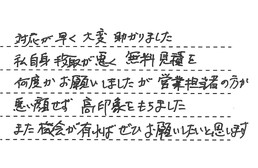 対応が早く大変助かりました
私自身段取が悪く無料見積を
何度かお願いしましたが営業担当者の方が
悪い顔せず高印象をもちました
また機会が有ればぜひお願いしたいと思います